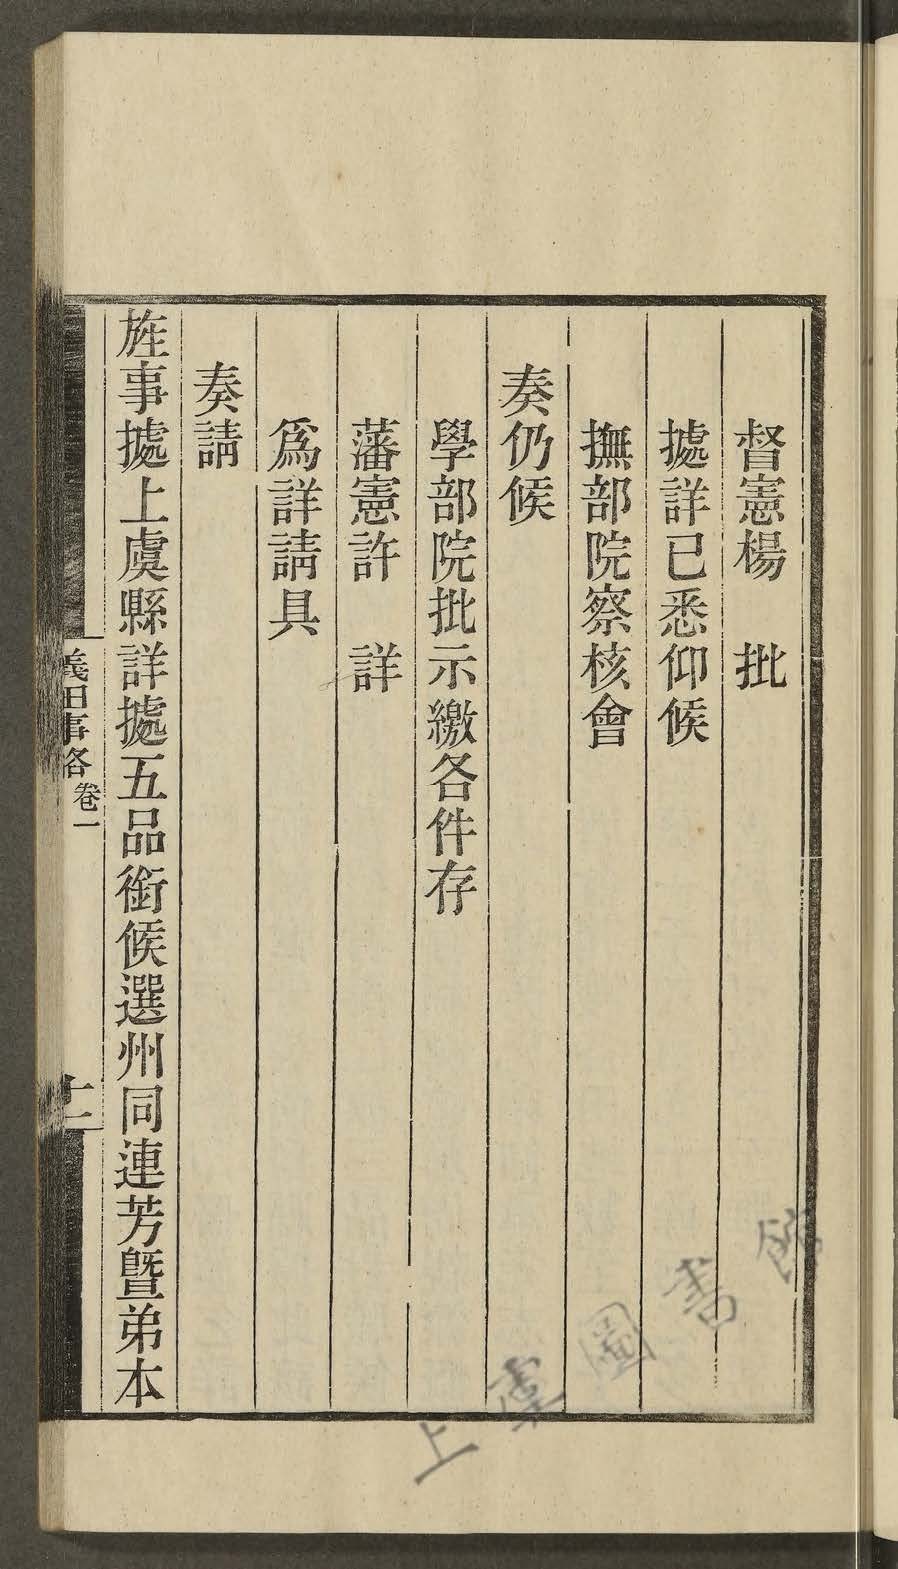 督憲楊　批
據詳已悉仰候
撫部院察核會
奏仍候
學部院批示繳各件存
藩憲許　詳
爲詳請具
奏請
旌事據上虞縣詳據五品銜候選州同連芳曁弟本
義田事略卷一
十一
上虞圖書館